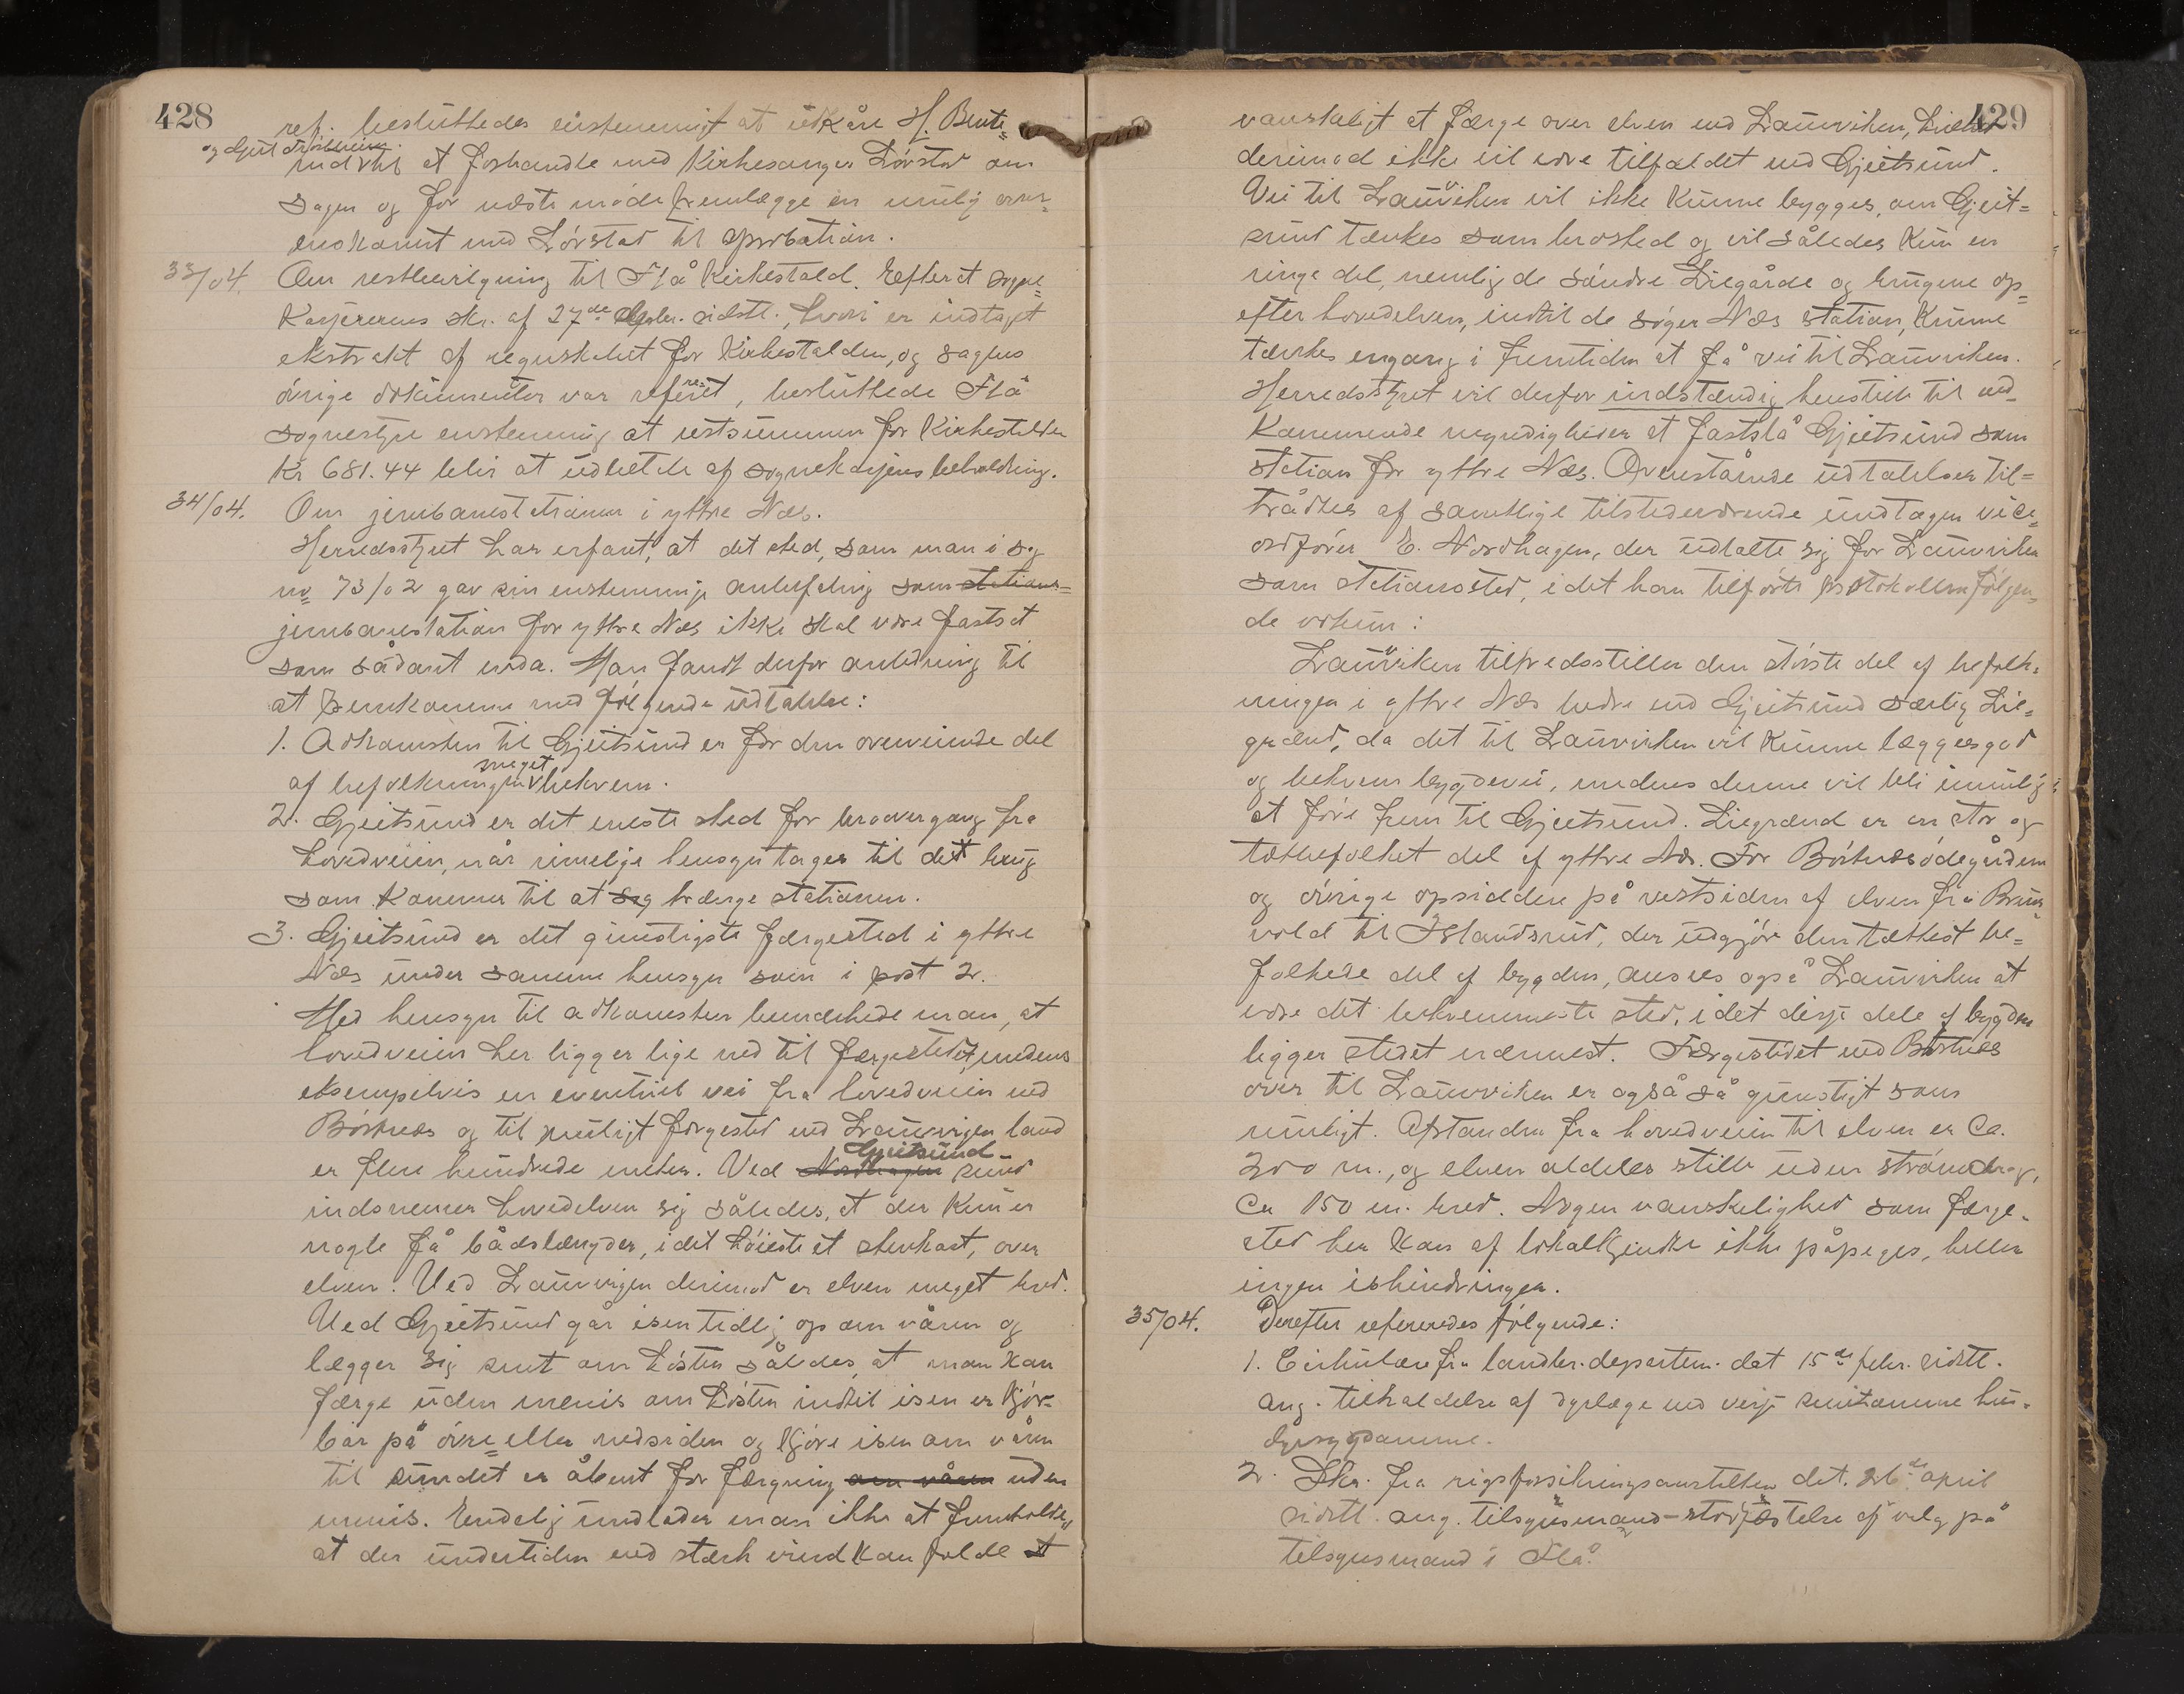 428
ref. besluttedes enstemmigt at udkåre H. Bent=
rud til at forhandle med Kirkesanger Lövstad om
sagen og for næste möde fremlægge en mulig over=
enskomst med Lövstad til approbation.
33/04. Om restbevilgning til Flå Kirkestald. Efterat sogne=
kasjererens skr. af 27de sidstl., hvori er indtaget
ekstrakt af regnskabet for Kirkestalden, og sagens
övrige dokumenter var referert, besluttede Flå
sognestyre enstemmig at restsummen for Kirkestalden
Kr 681.44 blir at udbetale af sognekasjens beholdning.
34/04. Om jernbanestationen i yttre Næs.
Herredsstyret har erfaret, at det sted, som man i sag
no 73/02 gav sin enstemmige anbefaling som stations=
jernbanestation for yttre Næs ikke skal være fastsat
som sådant enda. Man fandt derfor anledning til
at fremkomme med fölgende udtalelse:
1. Adkomsten til Gjeitsund er for den overveiende del
af befolkningen meget bekvem.
2. Gjeitsund er det eneste sted for broovergang fra
hovedveien, når rimelige hensyn tages til det brug
som kommer til at søg trænge stationen.
3. Gjeitsund er det gunstigste færgested i yttre
Næs under samme hensyn som i post 2.
Med hensyn til adkomsten bemærkede man, at
hovedveien her ligger lige ned til færgestedet, medens
eksempelvis en eventuel vei fra hovedveien ved
Börtnæs og til muligt færgested ved Laurvigen land
er flere hundrede meter. Ved Nordhagen Gjeitsund sund
indsnevrer hovedelven sig således, at der kun er
nogle få bådslængder, i det höieste et stenkast, over
elven. Ved Laurvigen derimod er elven meget bred.
Ved Gjeitsund går isen tidlig op om våren og
lægger sig sent om hösten således, at man kan
færge uden menis om hösten indtil isen er kjör=
bar på övre eller nedsiden og kjöre isen om våren
til sundet er åbent for færgning om våren uden
menis. Endelig undlader man ikke at fremholde,
at der undertiden ved stærk vind kan falde at
429
vanskeligt at færge over elven ved Laurviken, hvilket
derimod ikke vil være tilfældet ved Gjeitsund.
Vei til Laurviken vil ikke kunne bygges, om Gjeit=
sund tænkes som brosted og vil således kun en
ringe del, nemlig de söndre Liegårde og brugene op=
efter hovedelven, indtil de söger Næs station, kunne
tænkes engang i fremtiden at få vei til Laurviken.
Herredsstyret vil derfor indstændig henstille til ved=
kommende myndigheder at fastslå Gjeitsund som
station for yttre Næs. Ovenstående udtalelser til=
trådtes af samtlige tilstedeværende undtagen vice=
ordförer E. Nordhagen, der udtalte sig for Laurviken
som stationssted, i det han tilförte protokollen fölgen=
de votum:
Laurviken tilfredsstiller den störste del af befolk=
ningen i yttre Næs bedre end Gjeitsund særlig Lie=
grænd, da det til Laurviken vil kunne lægges god
og bekvem bygdevei, medens denne vil bli umulig
at före frem til Gjeitsund. Liegrænd er en stor og
tætbefolket del af yttre Næs. For Börtnæsödegårdene
og övrige opsiddere på vestsiden af elven fra Brun=
vold til Islandsrud, der udgjör den tættest be=
folkede del af bygden, ansees også Laurviken at
være det bekvemmeste sted, i det disse dele af bygden
ligger stedet nærmest. Færgestedet ved Börtnæs
over til Laurviken er også så gunstigt som
muligt. Afstanden fra hovedveien til elven er ca.
200 m., og elven aldeles stille uden strömdrag,
ca 150 m. bred. Nogen vanskelighed som færge=
sted her kan af lokalkjendte ikke påpeges, heller
ingen ishindringer.
35/04. Derefter refereredes fölgende:
1. Cirkulære fra landbr. departem. dat 15de febr. sidstl.
ang. tilkaldelse af dyrlæge ved visse smitsomme hus=
dyrsygdomme.
2. Skr. fra rigsforsikringsanstalten dat. 26de april
sidstl. ang. tilsynsmand-stadfæstelse af valg på
tilsynsmand i Flå.